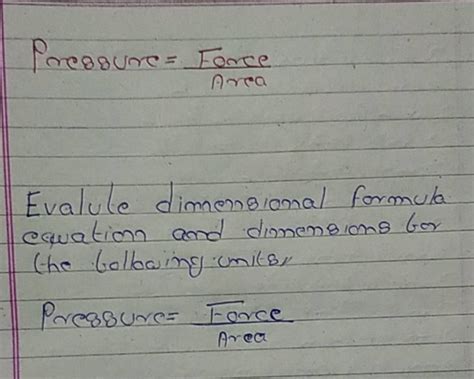 Pressure = Force
Area
Evalute dimensional formula
equation and dimensions for
the following units,
Pressure = Force
Area